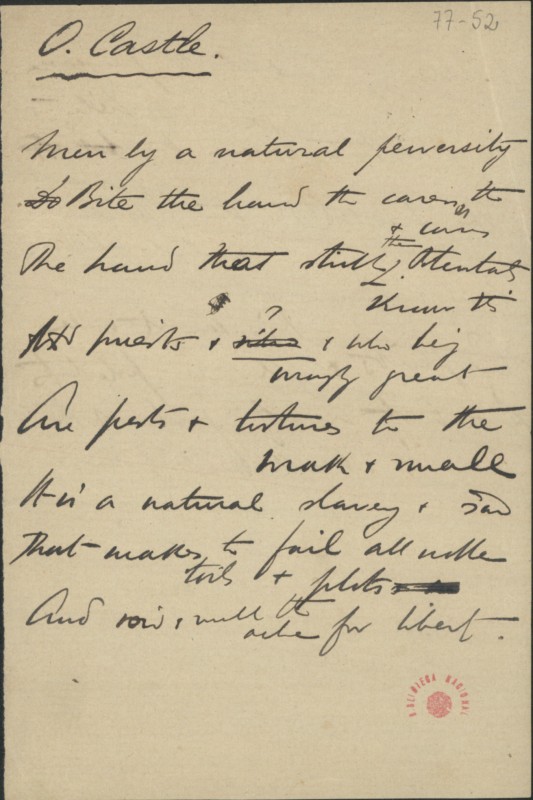 77-52
O. Castle.
Men by a natural perversity
Do Bite the hand th caress the
&
The hand that
the
Know this
And priests & & who being
great
Are pests & tortures to the
weak & small
It is a natural slavery & sad
That makes to fail all noble
toils & plots
And & null the
ache for libert.
BIBLIOTECA NACIONAL